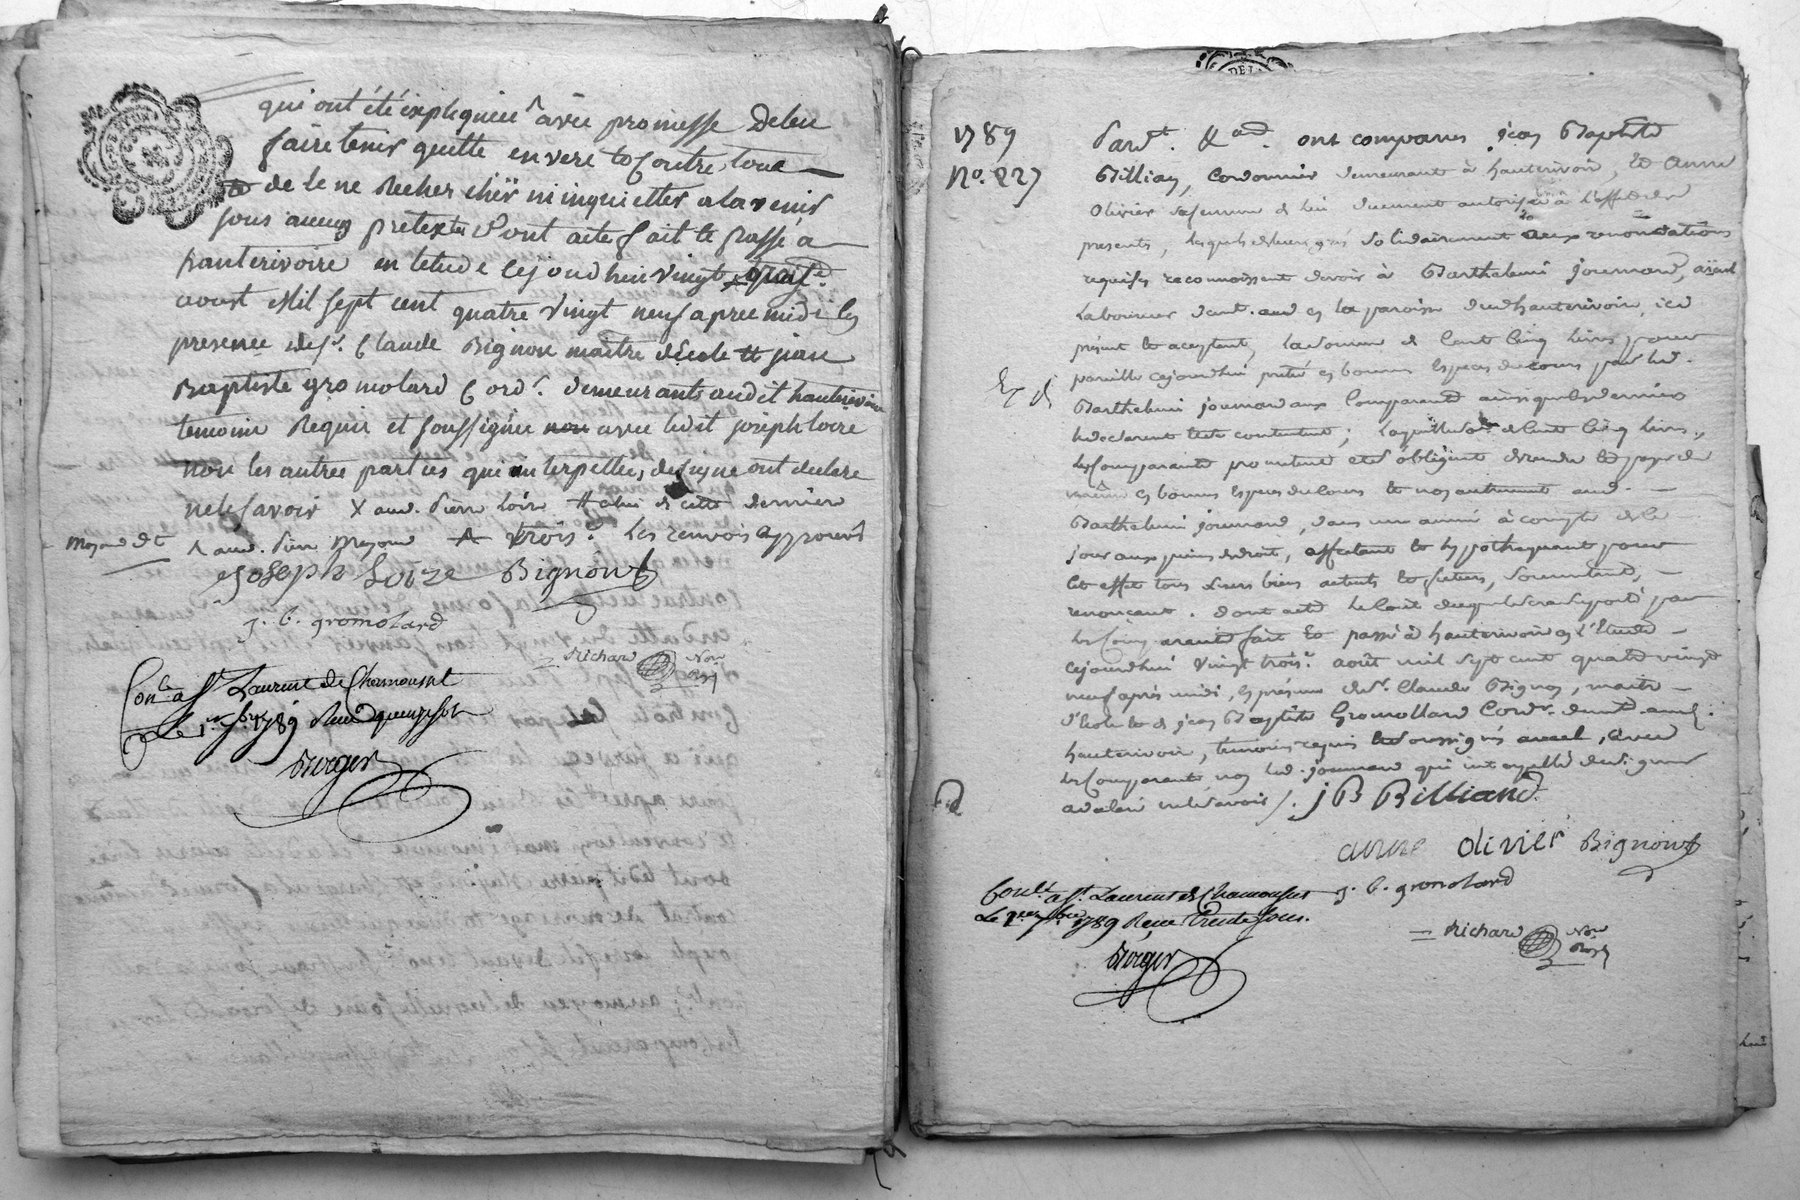 qui ont été expliquée avec promesse de leu
faire tenir quitte en vere & contre toue
de le ne Rechercher ni inquietter alavenir
sous aucun pretexte dont acte fait & passé a
hauterivoire en letude cejourdhui vingt quat.e
aoust Mil sept cent quatre vingt neuf apree midi En
presence de Sr. Claude Bignon maitre décole & jean
Baptiste gromolard Cord.r demeurants audit hauterivoire
temoins Requis et soussignée avec ledit joseph loire
non les autres parties qui interpellés de signe ont declare
ne le savoir X aud. Pierre Loire # celui de cette dernier
trois.e les renvois approuvés
Joseph Loize Bignon
j. b. gromolard
Richard Nore Royl
Con.lé a St. Laurent de Chamousset
Le 1.er 7bre 1789 Reçu quinze sols
Berger
DE LA
1789
No. 227
Pard.t &ad. ont comparus jean Baptiste
Billian, Cordonnier demeurant à hauterivoire, & anne
Olivier sa femme de lui duement autorisée à l'effet des
presents, lesquels de leur gré Solidairement aux renonciations
requises reconnoissent devoir à Barthelemi joumard,
Laboureur demt. aud en la paroisse dud hauterivoire, ici
présent & aceptant, la somme de Cent Cinq livres pour
pareille cejourdhui prêté en bonnes Especes du cours par led.
Barthelemi joumard aux Comparants ainsi que les derniers
le declarent & contentent; laquelle so.e de Cent Cinq livres,
les Comparants promettent et s'obligent de rendre & payer de
même en bonnes Especes du Cours & non autrement aud.
Barthelemi joumard, dans un année à compter de ce
jour aux peines de droit, affectant & hypothequant pour
cet effet tous leurs biens actuels & futurs, Soumettant,
renonçant. dont acte
les Comparants fait & passé à hauterivoire en l'Etude
cejourdhui vingt trois.e août mil sept cent quatre vingt
neuf aprés midi, en présence de Sr. Claude Bignon, maitre
d'Ecole & de jean Baptiste Gromollard Cordr. demts. aud.
hauterivoire, temoins requis & soussignés avec
les Comparants non led. joumard qui interpellé de signer
a declaré ne le savoir /. J B Billiand.
anne olivier Bignon
j. b. gromolard
Richard Nore Royl
Con.lé à St. Laurent de Chamousset
Le 1er 7bre 1789 Reçu trente sous.
Berger